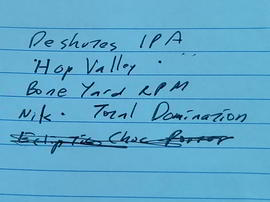 Deshutes IPA
Hop Valley · ··
Bone Yard RPM
Nik · Total Domination
Ecliptic Choc Porter